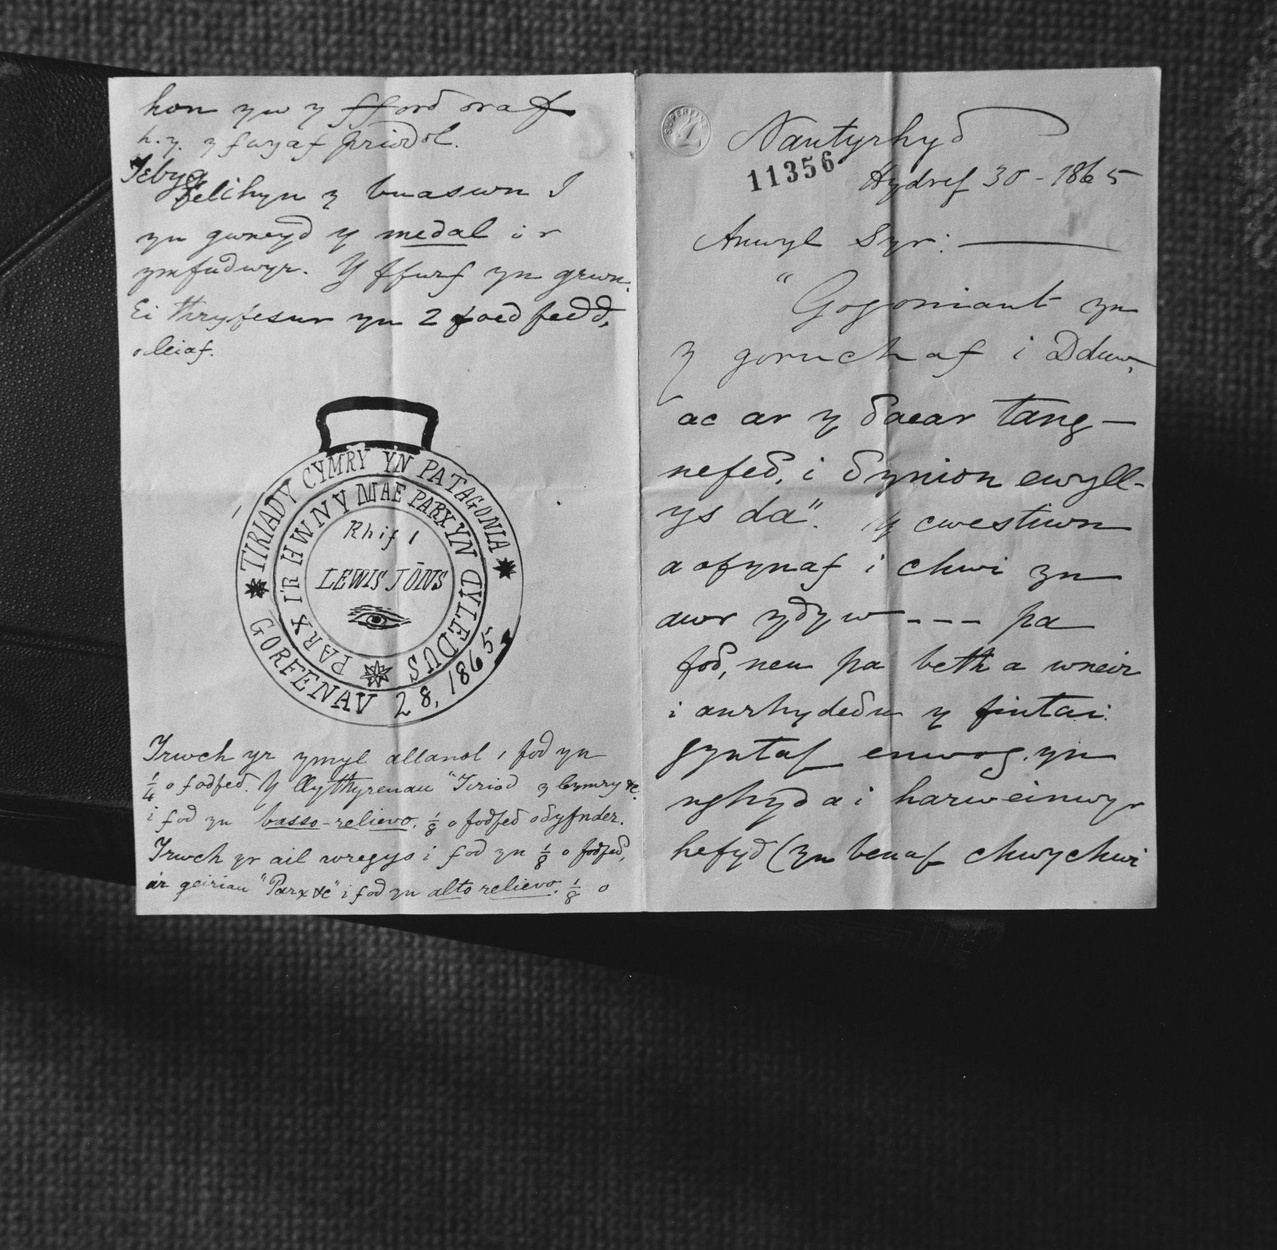 hon yw y fford oraf
h.y. y fwyaf priodol.
Tebyg
felihyn y buaswn I
yn gwneyd y medal i'r
ymfudwyr. Y ffurf yn grwn.
Ei thryfesur yn 2 foedfedd,
oleiaf.
TIRIADY CYMRY YN PATAGONIA
GORFENAV 28, 1865
PARX I'R HWN Y MAE PARX YN DYLEDUS
Rhif 1
LEWIS JŌNS
Trwch yr ymyl allanol i fod yn
1/4 o fodfed. Y llythyrenau "Tiriad y Cymry &c.
i fod yn basso-relievo. 1/8 o fodfed o dyfnder.
Trwch yr ail wregys i fod yn 1/8 o fodfed,
a'r geiriau "Parx &c" i fod yn alto relievo. 1/8 o
SUPERFINE
Nantyrhyd
11356
Hydref 30 - 1865
Anwyl Syr:
"Gogoniant yn
y goruchaf i Dduw,
ac ar y ðaear tang-
nefeð, i ðynion ewyll-
ys da". Y cwestiwn
a ofynaf i chwi yn
awr ydyw - - - pa
foð, neu pa beth a wneir
i anrhydeðu y fintai
gyntaf enwog, yn
nghyd a i harweinwyr
hefyd (yn benaf chwychwi